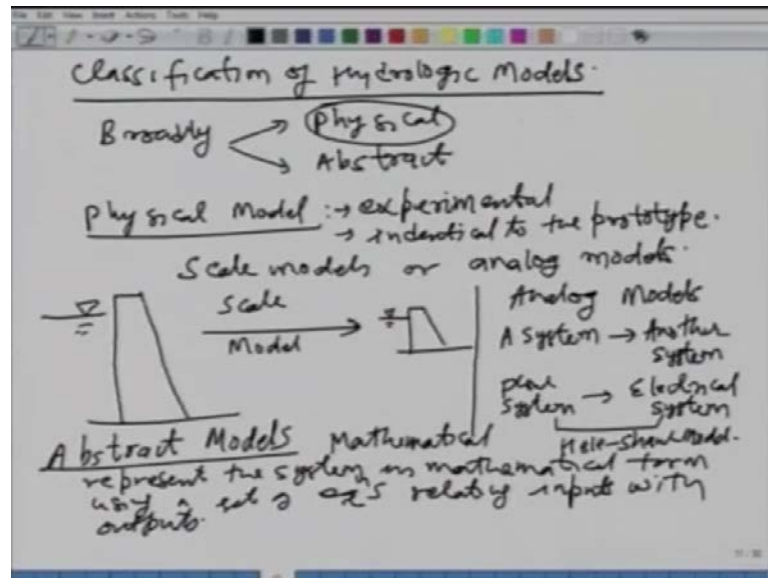 File Edit View Insert Actions Tools Help
Classification of Hydrologic Models.
Broadly
Physical
Abstract
Physical Model :→ experimental
→ indentical to the prototype.
Scale models or analog models.
Scale
Model
Analog Models
A system → Another
system
system → Electrical
system
Hele-Shaw Model.
Abstract Models Mathematical
represent the system in mathematical form
using a set of eqns relating inputs with
outputs.